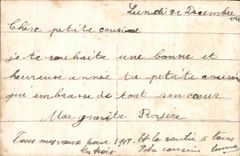 Lundi 21 Decembre
Chère petite cousine
je te souhaite une bonne et
heureuse année ta petite cousine
qui embrasse de tout son cœur
Marguerite
Tous mes vœux pour 1919. Et la santé à tous
les trois. Votre cousin